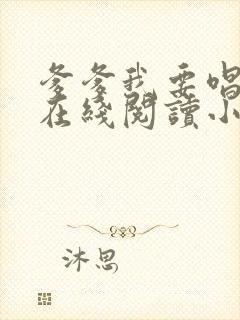 爹爹我要唱
在线阅读小
沐思